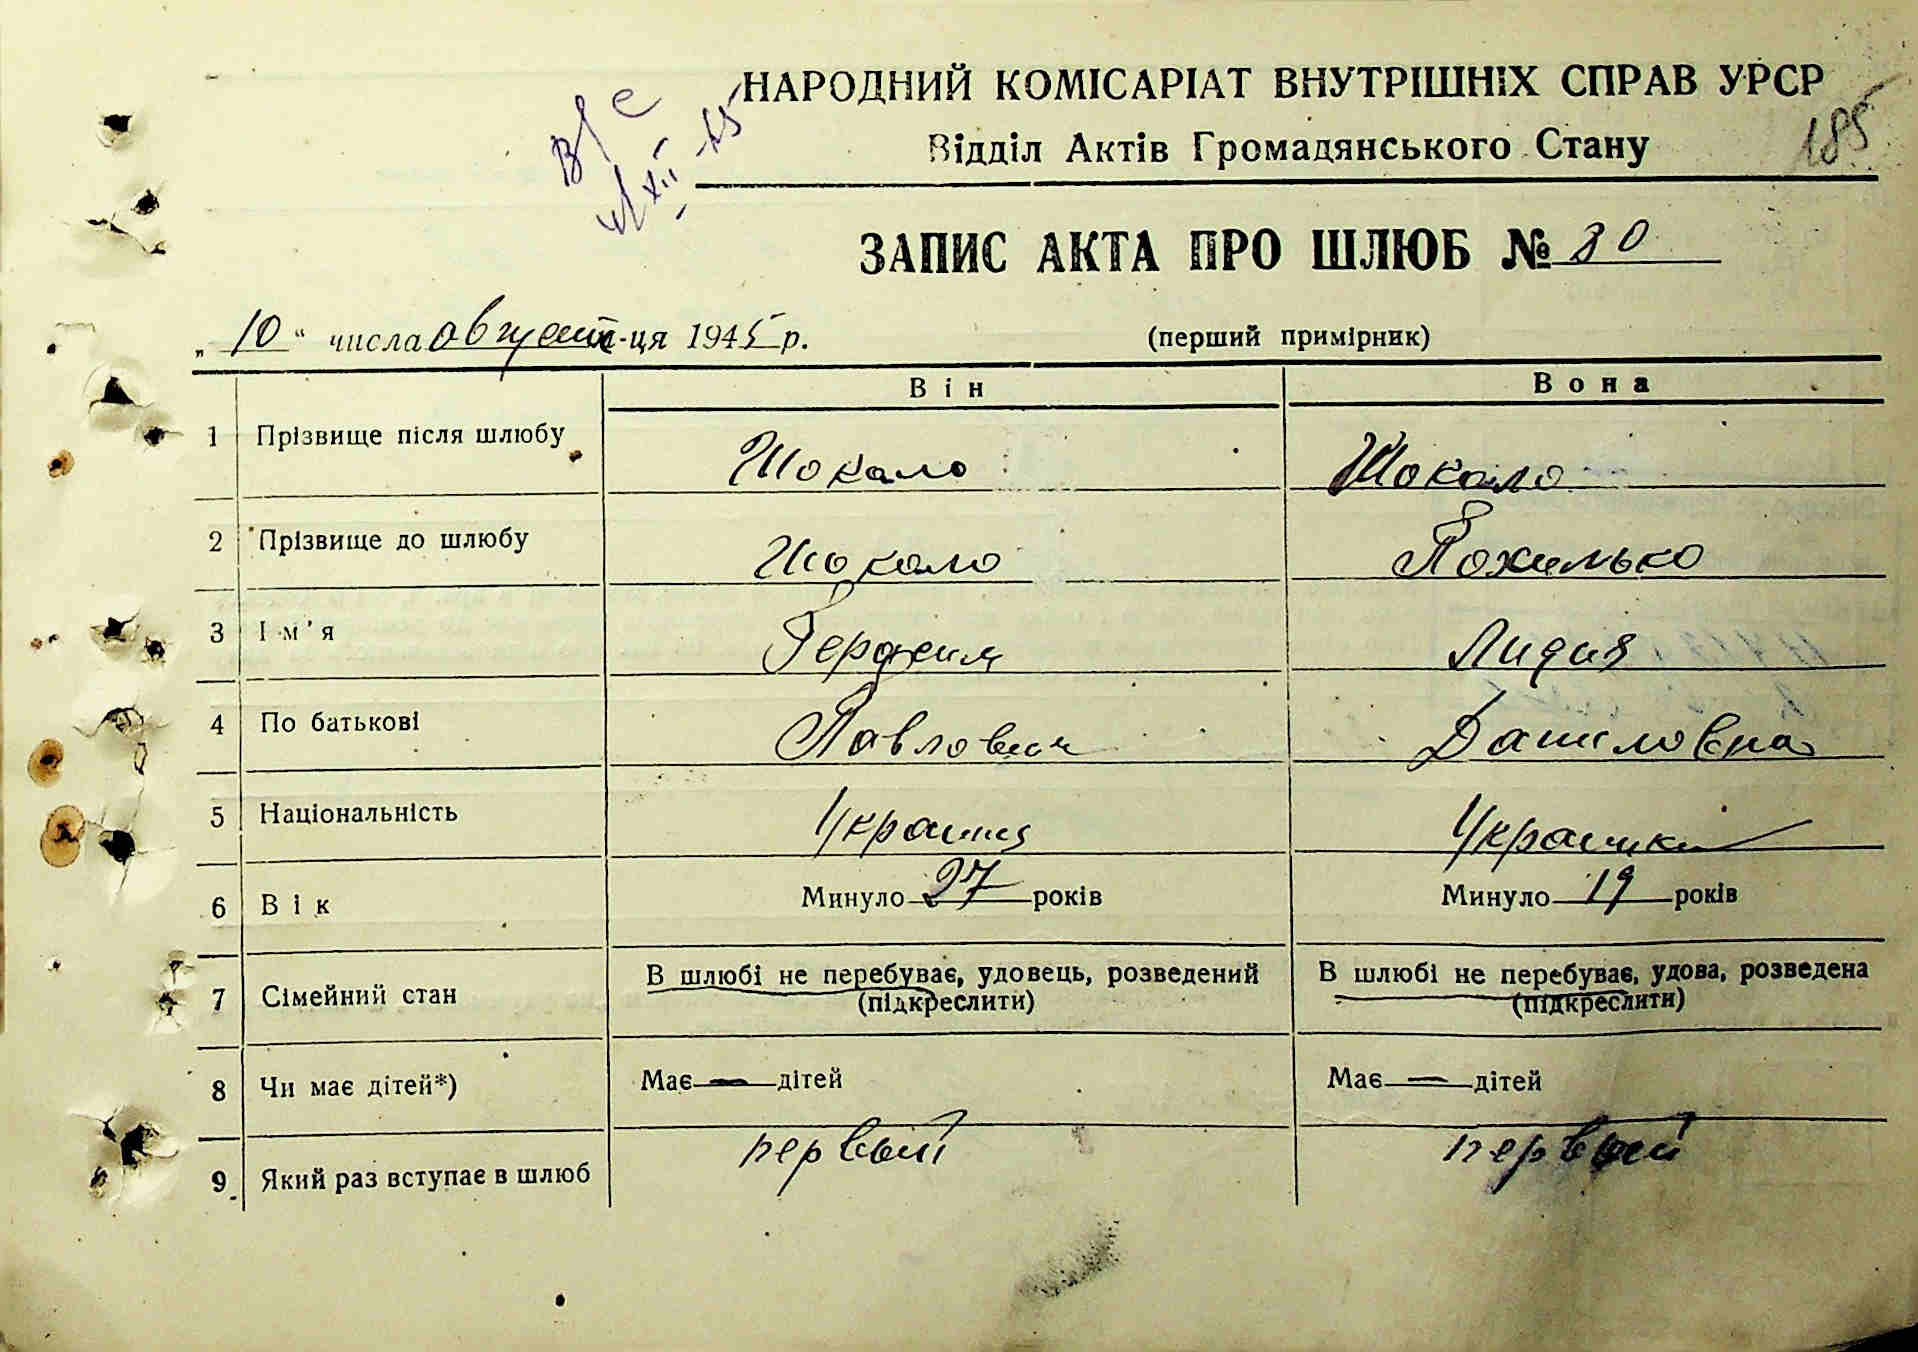 НАРОДНИЙ КОМІСАРІАТ ВНУТРІШНІХ СПРАВ УРСР
Відділ Актів Громадянського Стану
185
ЗАПИС АКТА ПРО ШЛЮБ № 80
„10“ числа август-ця 1945 р. (перший примірник)
Він Вона
1 Прізвище після шлюбу Шокало Шокало
2 Прізвище до шлюбу Шокало Похилько
3 Ім'я Герасим Лидия
4 По батькові Павлович Даниловна
5 Національність Украинец Украинка
6 Вік Минуло 27 років Минуло 19 років
7 Сімейний стан В шлюбі не перебуває, удовець, розведений (підкреслити) В шлюбі не перебуває, удова, розведена (підкреслити)
8 Чи має дітей*) Має — дітей Має — дітей
9 Який раз вступає в шлюб первый первый